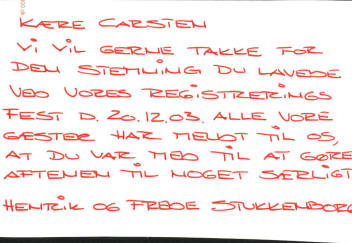 KÆRE CARSTEN
VI VIL GERNE TAKKE FOR
DEN STEMNING DU LAVEDE
VED VORES REGISTRERINGS
FEST D. 20.12.03. ALLE VORE
GÆSTER HAR MELDT TIL OS,
AT DU VAR MED TIL AT GØRE
AFTENEN TIL NOGET SÆRLIGT
HENRIK OG FREDE STUKKENBORG